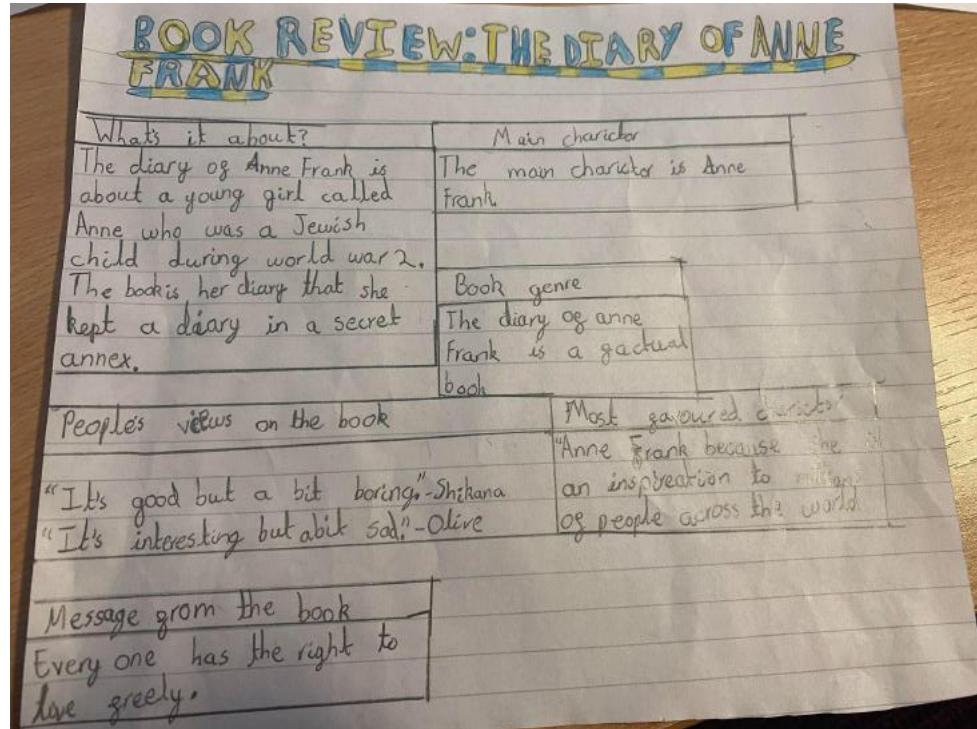 BOOK REVIEW: THE DIARY OF ANNE
FRANK
What's it about?
The diary of Anne Frank is
about a young girl called
Anne who was a Jewish
child during world war 2.
The book is her diary that she
kept a diary in a secret
annex.
Main charictor
The main charictor is Anne
Frank
Book genre
The diary of anne
Frank is a factual
book
People's views on the book
"It's good but a bit boring."-Shikana
"It's interesting but abit sad."-Olive
Most favoured
"Anne Frank because she
an inspireation to
of people across the world
Message from the book
Every one has the right to
freely.